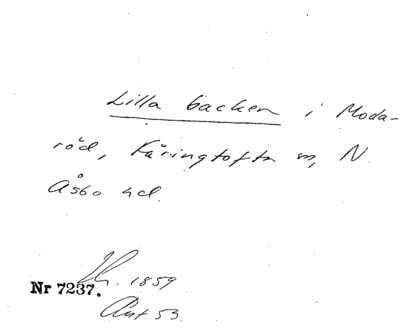 Lilla backen i Moda-
röd, Käringtofta sn, N.
Åsbo hd.
Nr 7237.
1859
Ant 53